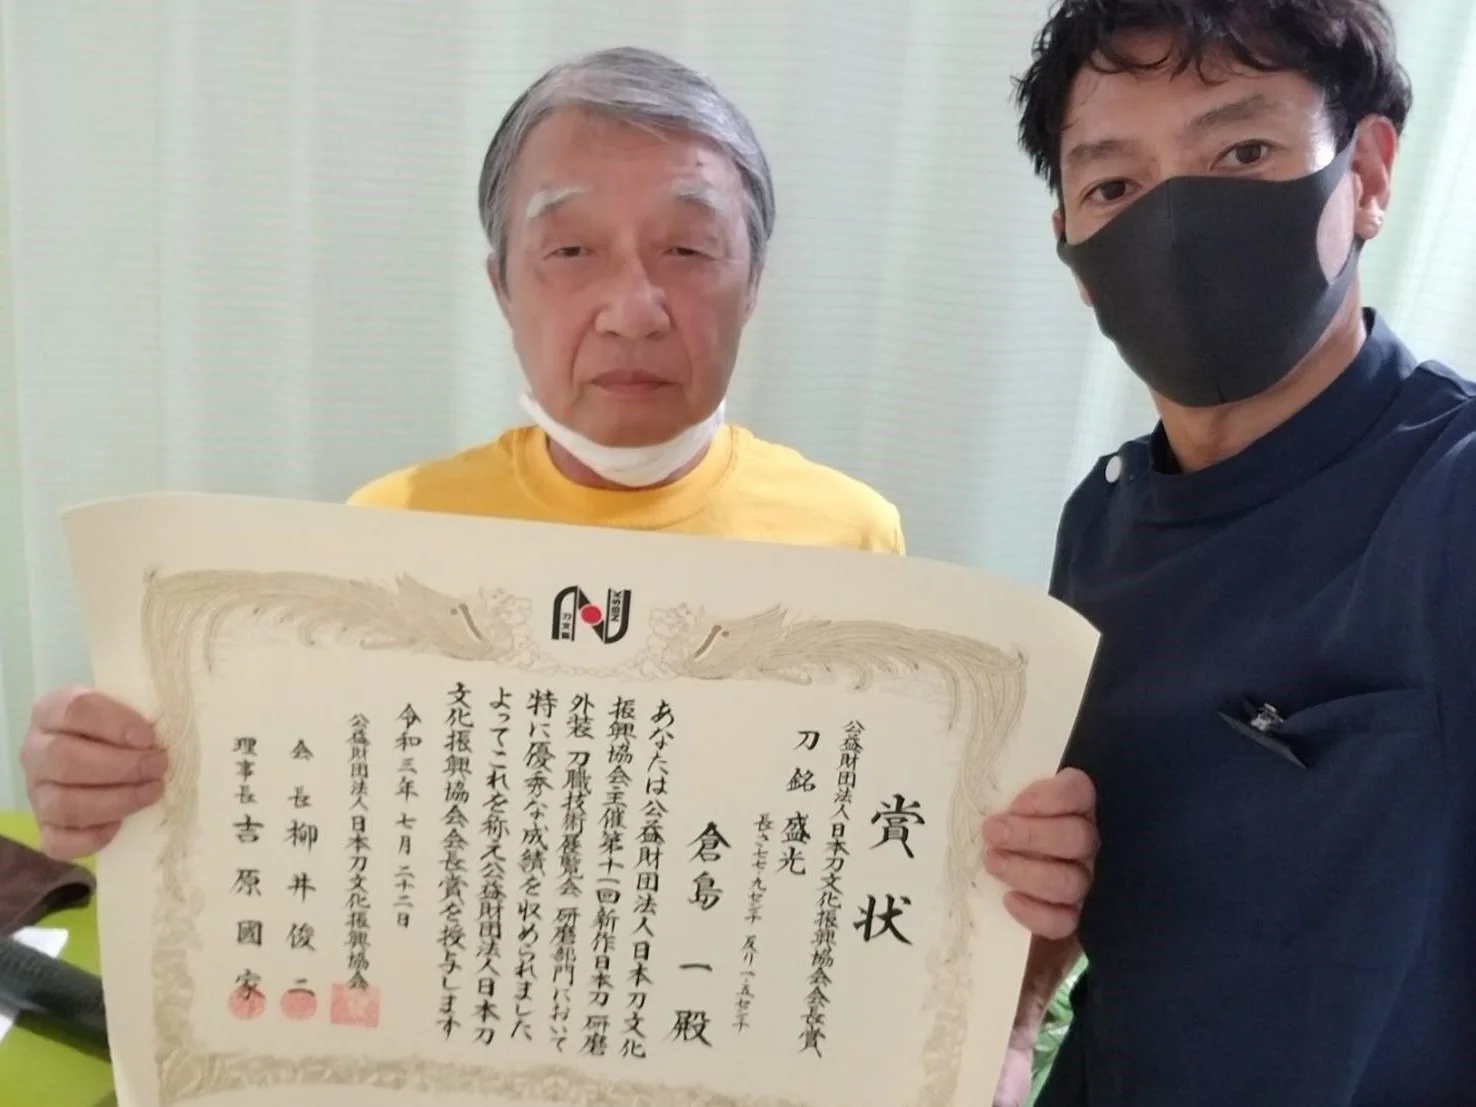 NBSK
刀文協
賞状
公益財団法人日本刀文化振興協会会長賞
刀 銘 盛光
長さ七七.九センチ 反り一.五センチ
倉島 一 殿
あなたは公益財団法人日本刀文化
振興協会主催第十一回新作日本刀 研磨
外装 刀職技術展覧会 研磨部門において
特に優秀な成績を収められました
よってこれを称え公益財団法人日本刀
文化振興協会会長賞を授与します
令和三年七月二十二日
公益財団法人日本刀文化振興協会
会長 柳井俊二
理事長 吉原國家